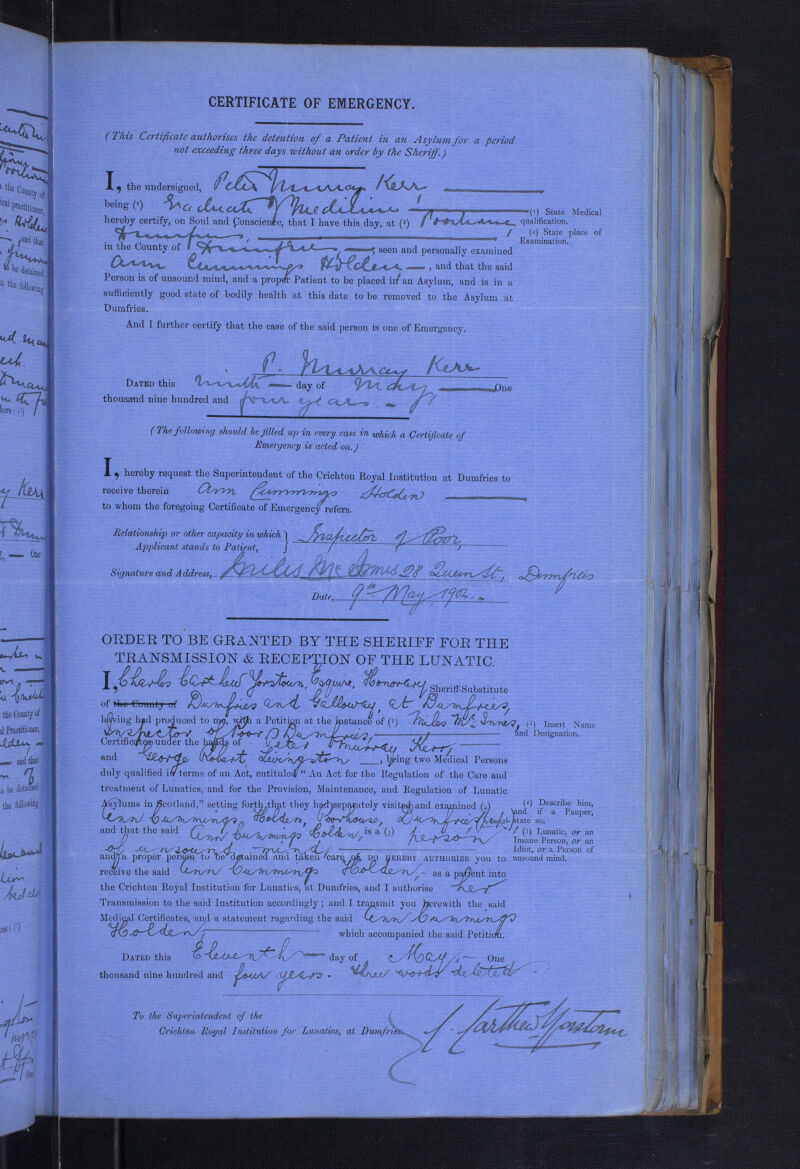 CERTIFICATE OF EMERGENCY.
(This Certificate authorises the detention of a Patient in an Asylum for a period
not exceeding three days without an order by the Sheriff.)
I, the undersigned, Peter Murray Kerr
being (1) Graduate of Medicine
(1) State Medical
qualification.
hereby certify, on Soul and Conscience, that I have this day, at (2) Poorhouse
Dumfries,
(2) State place of
Examination.
in the County of Dumfries, seen and personally examined
Ann Cummings Holden, and that the said
Person is of unsound mind, and a proper Patient to be placed in an Asylum, and is in a
sufficiently good state of bodily health at this date to be removed to the Asylum at
Dumfries.
And I further certify that the case of the said person is one of Emergency.
P. Murray Kerr
DATED this ninth day of May One
thousand nine hundred and four years.
(The following should be filled up in every case in which a Certificate of
Emergency is acted on.)
I, hereby request the Superintendent of the Crichton Royal Institution at Dumfries to
receive therein Ann Cummings Holden
to whom the foregoing Certificate of Emergency refers.
Relationship or other capacity in which
Applicant stands to Patient, } Inspector of Poor,
Signature and Address, Miles McInnes 28 Queen St., Dumfries
Date, 9th May 1904.
ORDER TO BE GRANTED BY THE SHERIFF FOR THE
TRANSMISSION & RECEPTION OF THE LUNATIC.
I, Charles Carthew Yorstoun, Esquire, Honorary Sheriff-Substitute
of the County of Dumfries and Galloway, at Dumfries,
having had produced to me, with a Petition at the instance of (1) Miles McInnes,
(1) Insert Name
and Designation.
Inspector of Poor, Dumfries,
Certificates under the hands of Peter Murray Kerr,
and George Robert Livingston, being two Medical Persons
duly qualified in terms of an Act, entituled "An Act for the Regulation of the Care and
treatment of Lunatics, and for the Provision, Maintenance, and Regulation of Lunatic
Asylums in Scotland," setting forth that they had separately visited and examined (2)
(2) Describe him,
and if a Pauper,
state so,
Ann Cummings Holden, Poorhouse, Dumfries, pauper
and that the said Ann Cummings Holden, is a (3) person
(3) Lunatic, or an
Insane Person, or an
Idiot, or a Person of
unsound mind.
of unsound mind,
and a proper person to be detained and taken care of, DO HEREBY AUTHORIZE YOU to
receive the said Ann Cummings Holden, as a patient into
the Crichton Royal Institution for Lunatics, at Dumfries, and I authorise her
Transmission to the said Institution accordingly; and I transmit you herewith the said
Medical Certificates, and a statement ragarding the said Ann Cummings
Holden, which accompanied the said Petition.
DATED this Eleventh day of May, One
thousand nine hundred and four years. Three words deleted.
To the Superintendent of the
Crichton Royal Institution for Lunatics, at Dumfries.
C. Carthew Yorstoun